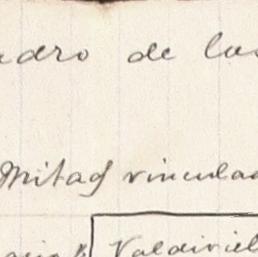 adro de las
Mitad vinculad
Valdiviel